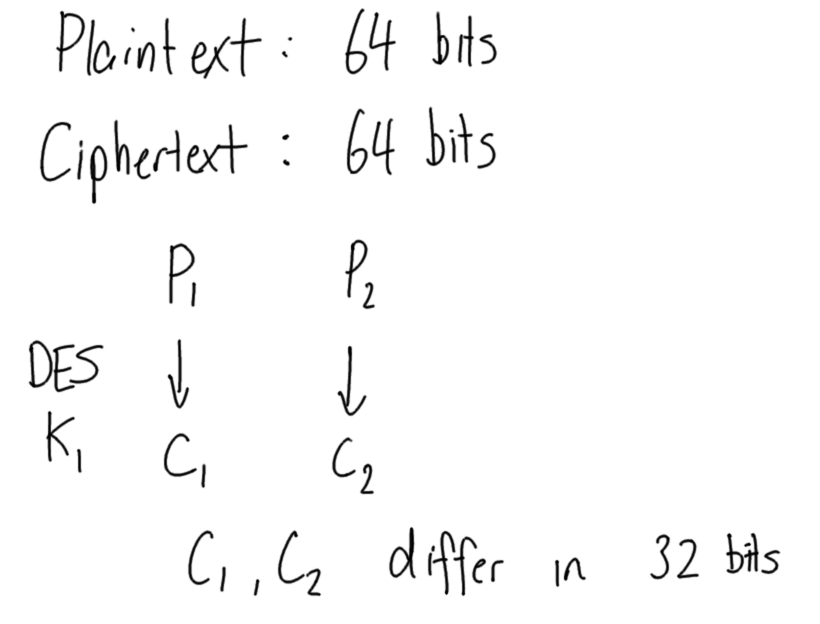 Plaintext : 64 bits
Ciphertext : 64 bits
P₁ P₂
DES ↓ ↓
K₁ C₁ C₂
C₁, C₂ differ in 32 bits